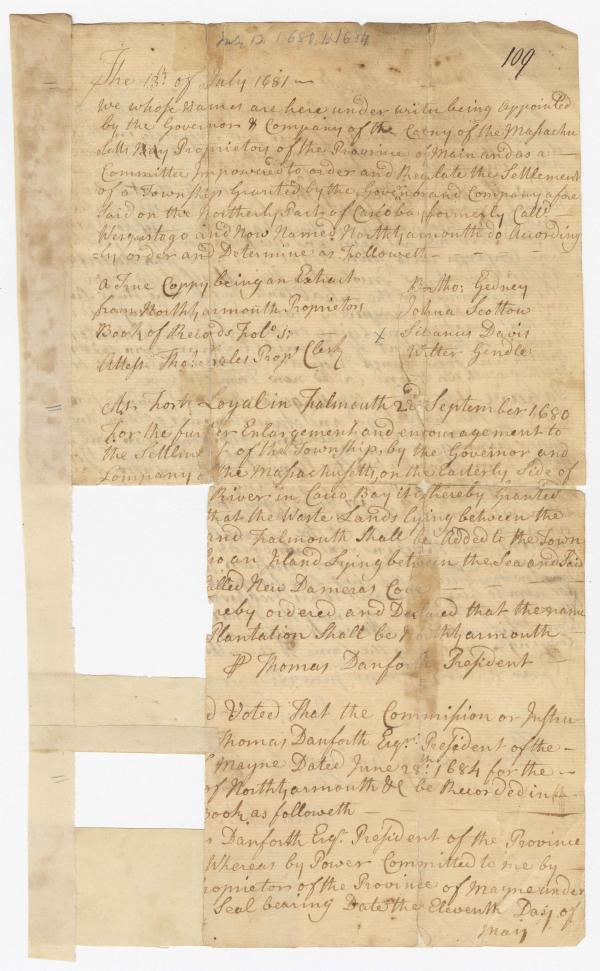 July 12 1680, 1684
109
The 13th of July 1681
We whose Names are here under writn being appointed
by the Governor & Company of the Colony of the Massachu
setts Bay Proprietors of the Province of Main and as a
Committee Impowered to order and Regulate the Settlement
of a Township Granted by the Governor and Company afore
Said on the Northerly Part of Casco bay formerly Calld
Wesgustogo and Now Named North Yarmouth do According
=ly order and Determine as Followeth
A True Coppy being an Extract
from North Yarmouth Proprietors
Book of Records Folo 5:
Attest Thos: Scales Propr Clerk
Bartho: Gedney
Johna Scottow
x Silvanus Davis
Walter Gendle
At Fort Loyal in Falmouth 22d September 1680
For the further Enlargement and encouragement to
the Settlem of the Township, by the Governor and
Company of the Massachusetts, on the Easterly Side of
River in Casco Bay it is hereby Granted
that the Waste Lands lying between the
and Falmouth Shall be Added to the Town
lso an Island Lying between the Sea and Said
alled New Dameras Cove
reby ordered and Declared that the name
Plantation Shall be North Yarmouth
P Thomas Danforth President
d Voted That the Commission or Instru
Thomas Danforth Esqr: President of the
f Mayne Dated June 28th: 1684 for the
of North Yarmouth &c be Recorded in
Book as followeth
s Danforth Esqr. President of the Province
Whereas by Power Committed to me by
roprietors of the Province of Mayne under
Seal bearing Date the Eleventh Day of
May